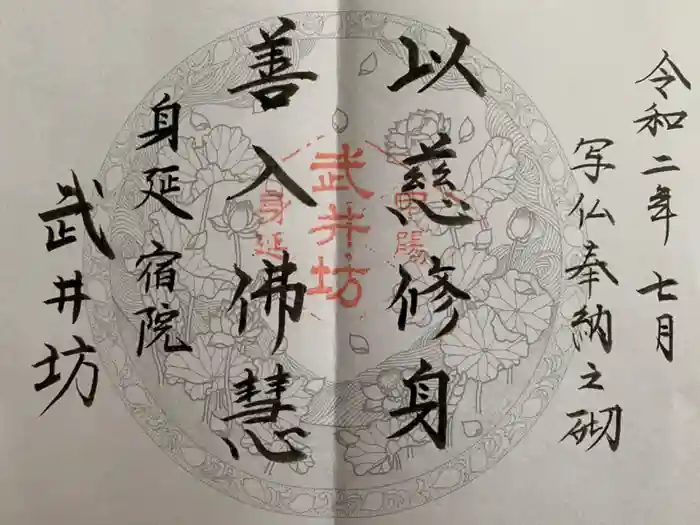 令和二年 七月
写仏奉納之砌
以慈修身
善入佛慧
甲陽
武井坊
身延
身延 宿院
武井坊